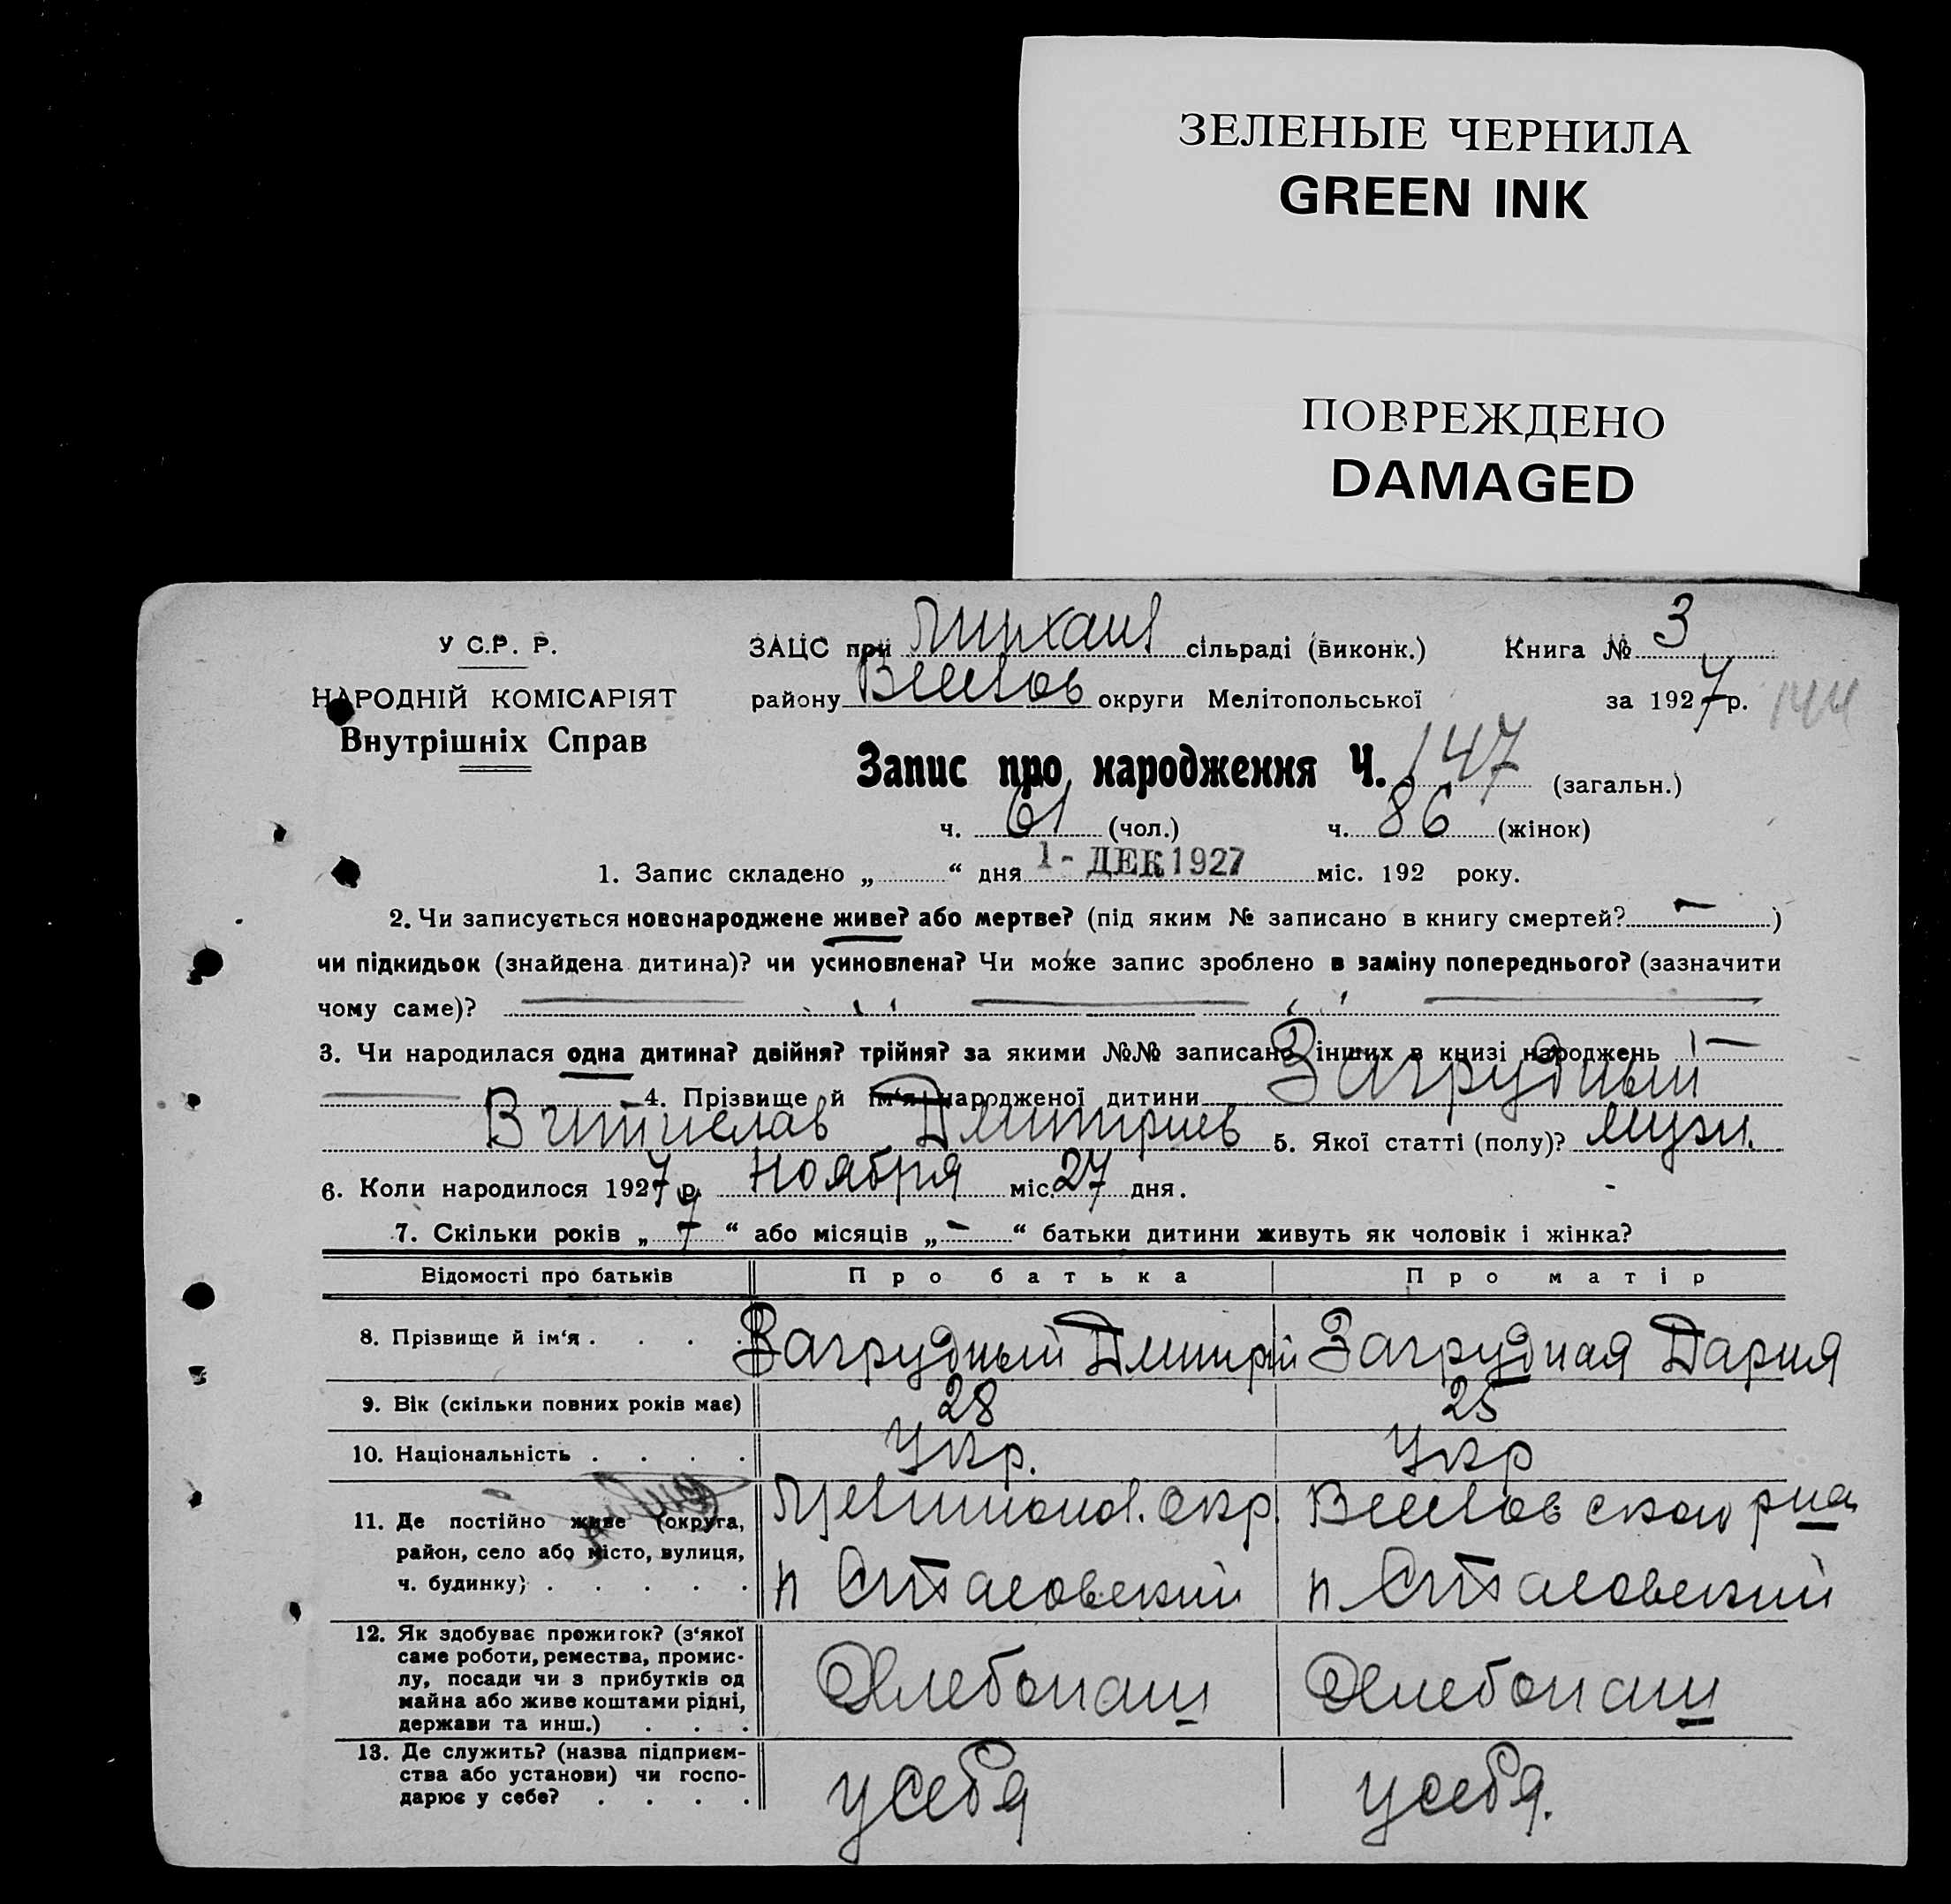 ЗЕЛЕНЫЕ ЧЕРНИЛА
GREEN INK
ПОВРЕЖДЕНО
DAMAGED
У С.Р.Р.
НАРОДНІЙ КОМІСАРІЯТ
Внутрішніх Справ
ЗАЦС при сільраді (виконк.) Книга № 3
району Веселов округи Мелітопольської за 1927 р. 144
Запис про народження Ч. 147 (загальн.)
ч. 61 (чол.) ч. 86 (жінок)
1. Запис складено „ “ дня 1-ДЕК 1927 міс. 192 року.
2. Чи записується новонароджене живе? або мертве? (під яким № записано в книгу смертей? — )
чи підкидьок (знайдена дитина)? чи усиновлена? Чи може запис зроблено в заміну попереднього? (зазначити
чому саме)?
3. Чи народилася одна дитина? двійня? трійня? за якими №№ записано інших в книзі народжень —
4. Прізвище й ім‘я народженої дитини Загрудный
Дмитриев 5. Якої статті (полу)? мужч.
6. Коли народилося 1927 р. Ноября міс. 27 дня.
7. Скільки років „ “ або місяців „ — “ батьки дитини живуть як чоловік і жінка?
Відомості про батьків Про батька Про матір
8. Прізвище й ім‘я . . . . Загрудный Дмитрий Загрудная Дария
9. Вік (скільки повних років має) 28 25
10. Національність . . . . Укр. Укр
11. Де постійно живе (округа,
район, село або місто, вулиця,
ч. будинку) . . . . .
Мелитопол. Окр. Веселовской р-на
12. Як здобуває прожиток? (з‘якої
саме роботи, ремества, промис-
лу, посади чи з прибутків од
майна або живе коштами рідні,
держави та инш.) . . .
Хлебопаш Хлебопаш
13. Де служить? (назва підприєм-
ства або установи) чи госпо-
дарює у себе? . . . .
у себя у себя.